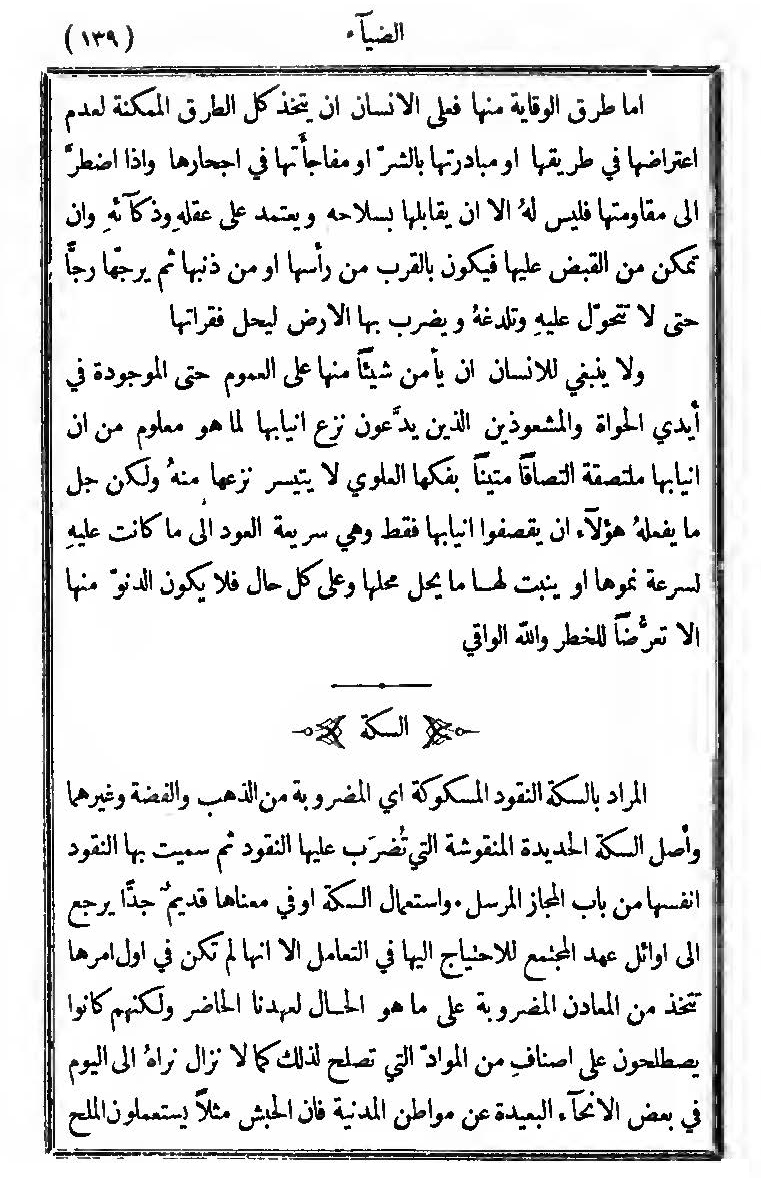 الضيآء (١٣٩)
اما طرق الوقاية منها فعلى الانسان ان يتخذ كل الطرق الممكنة لعدم
اعتراضها في طريقها او مبادرتها بالشرّ او مفاجأتها في اجحارها واذا اضطرَّ
الى مقاومتها فليس لهُ الا ان يقابلها بسلاحه ويعتمد على عقلهِ وذكآئهِ وان
تمكن من القبض عليها فيكون بالقرب من رأسها او من ذنبها ثم يرجّها رجًّا
حتى لا تتحوّل عليهِ وتلدغهُ ويضرب بها الارض ليحل فقراتها
ولا ينبغي للانسان ان يأمن شيئًا منها على العموم حتى الموجودة في
أيدي الحواة والمشعوذين الذين يدَّعون نزع انيابها لما هو معلوم من ان
انيابها ملتصقة التصاقًا متينًا بفكها العلوي لا يتيسر نزعها منهُ ولكن جل
ما يفعلهُ هؤلآء ان يقصفوا انيابها فقط وهي سريعة العود الى ما كانت عليهِ
لسرعة نموها او ينبت لها ما يحل محلها وعلى كل حال فلا يكون الدنوّ منها
الا تعرُّضًا للخطر والله الواقي
السكة
المراد بالسكة النقود المسكوكة اي المضروبة من الذهب والفضة وغيرهما
وأصل السكة الحديدة المنقوشة التي تُضرَب عليها النقود ثم سميت بها النقود
انفسها من باب المجاز المرسل. واستعمال السكة او في معناها قديمٌ جدًّا يرجع
الى اوائل عهد المجتمع للاحتياج اليها في التعامل الا انها لم تكن في اول امرها
تتخذ من المعادن المضروبة على ما هو الحال لعهدنا الحاضر ولكنهم كانوا
يصطلحون على اصنافٍ من الموادّ التي تصلح لذلك كما لا نزال نراهُ الى اليوم
في بعض الانحآء البعيدة عن مواطن المدنية فان الحبش مثلاً يستعملون الملح